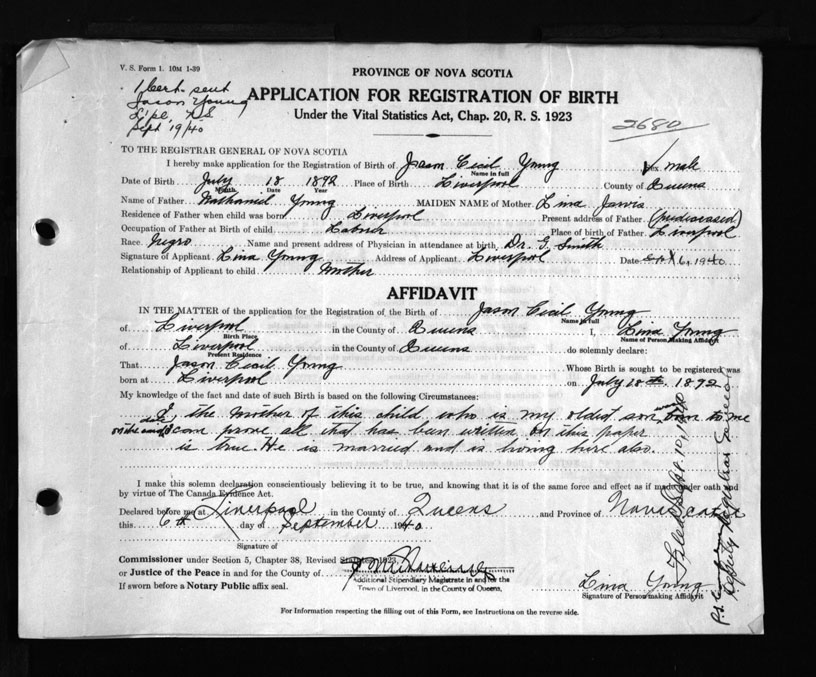 V. S. Form 1. 10M 1-39
1 Cert. sent
Jason Young
L'pl, N.S
Sept 19/40
PROVINCE OF NOVA SCOTIA
APPLICATION FOR REGISTRATION OF BIRTH
Under the Vital Statistics Act, Chap. 20, R. S. 1923
2680
TO THE REGISTRAR GENERAL OF NOVA SCOTIA
I hereby make application for the Registration of Birth of Jason Cecil Young Sex male
Name in full
Date of Birth July 18 1892 Place of Birth Liverpool County of Queens
Month Date Year
Name of Father Nathaniel Young MAIDEN NAME of Mother Lina Jarvis
Residence of Father when child was born Liverpool Present address of Father (predeceased)
Occupation of Father at Birth of child Laborer Place of birth of Father Liverpool
Race Negro Name and present address of Physician in attendance at birth Dr. Smith
Signature of Applicant Lina Young Address of Applicant Liverpool Date 6, 1940
Relationship of Applicant to child Mother
AFFIDAVIT
IN THE MATTER of the application for the Registration of the Birth of Jason Cecil Young
Name in full
of Liverpool in the County of Queens I, Lina Young
Birth Place Name of Person Making Affidavit
of Liverpool in the County of Queens do solemnly declare:
Present Residence
That Jason Cecil Young Whose Birth is sought to be registered was
born at Liverpool on July 18 1892
My knowledge of the fact and date of such Birth is based on the following Circumstances:
I, the mother of this child who is my oldest son was born to me
on the date can prove all that has been written on this paper
is true. He is married and is living here also.
I make this solemn declaration conscientiously believing it to be true, and knowing that it is of the same force and effect as if made under oath and
by virtue of The Canada Evidence Act.
Declared before me at Liverpool in the County of Queens and Province of Nova Scotia
this 6th day of September 1940
Signature of
Commissioner under Section 5, Chapter 38, Revised Statutes 1923,
or Justice of the Peace in and for the County of
If sworn before a Notary Public affix seal.
Additional Stipendiary Magistrate in and for the
Town of Liverpool, in the County of Queens,
Lina Young
Signature of Person making Affidavit
For Information respecting the filling out of this Form, see Instructions on the reverse side.
Filed Sept. 10, 1940
Deputy Registrar